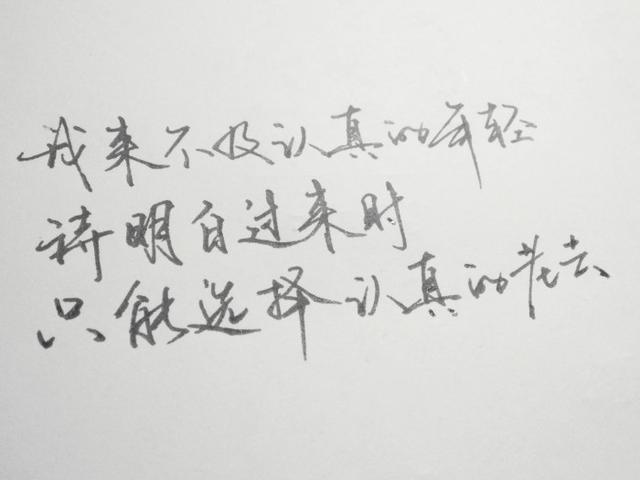 我来不及认真的年轻
待明白过来时
只能选择认真的老去